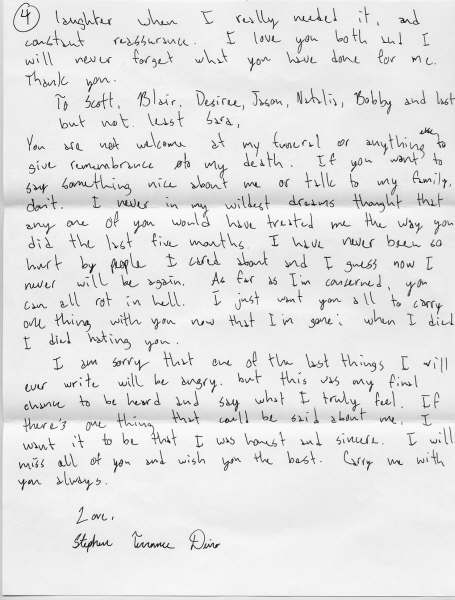 4 laughter when I really needed it, and
constant reassurance. I love you both and I
will never forget what you have done for me.
Thank you.
To Scott, Blair, Desiree, Jason, Natalie, Bobby and last
but not least Sara,
You are not welcome at my funeral or anything else to
give remembrance to my death. If you want to
say something nice about me or talk to my family,
don't. I never in my wildest dreams thought that
any one of you would have treated me the way you
did the last five months. I have never been so
hurt by people I cared about and I guess now I
never will be again. As far as I'm concerned, you
can all rot in hell. I just want you all to carry
one thing with you now that I'm gone: when I died
I died hating you.
I am sorry that one of the last things I will
ever write will be angry, but this was my final
chance to be heard and say what I truly feel. If
there's one thing that could be said about me, I
want it to be that I was honest and sincere. I will
miss all of you and wish you the best. Carry me with
you always.
Love,
Stephen Terrance